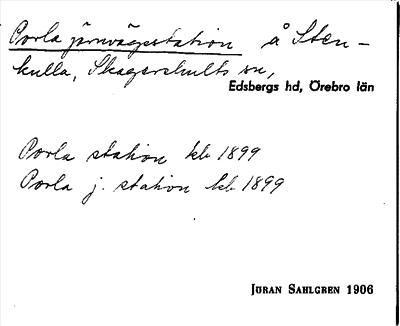 Porla järnvägsstation å Sten-
kulla, Skagershults sn,
Edsbergs hd, Örebro län
Porla station kb 1899
Porla j. station kb 1899
Jöran Sahlgren 1906